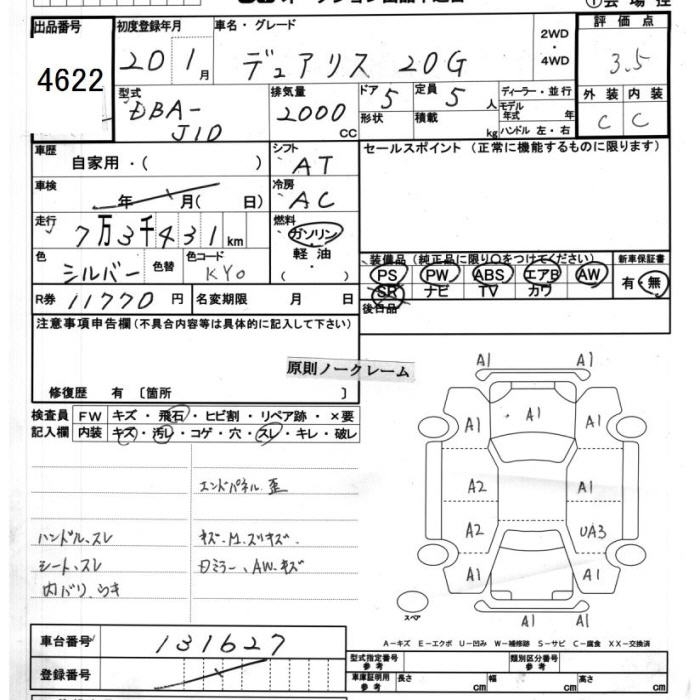 出品番号 初度登録年月 車名・グレード 評価点
4622
20 1 月 デュアリス 20G 2WD・4WD 3.5
型式 排気量 ドア 定員 ディーラー・並行 外装 内装
DBA-J10 2000 CC 5 5 人 モデル年式 年 C C
形状 積載 kg ハンドル 左・右
車歴 シフト セールスポイント (正常に機能するものに限ります)
自家用・( ) AT
車検 冷房
年 月( 日) AC
走行 燃料
7万3千431km ガソリン・軽油・( )
色 色替 色コード 装備品(純正品に限り○をつけてください) 新車保証書
シルバー KY0 PS PW ABS エアB AW 有・無
SR ナビ TV カワ
R券 11770 円 名変期限 月 日 後日品
注意事項申告欄(不具合内容等は具体的に記入して下さい)
原則ノークレーム
修復歴 有 〔箇所 〕
検査員 FW キズ・飛石・ヒビ割・リペア跡・×要
記入欄 内装 キズ・汚レ・コゲ・穴・スレ・キレ・破レ
エンドパネル歪
ハンドル.スレ キズ.M.スリキズ.
シート.スレ Dミラー.AW.キズ
内バリ.ウキ
A1 A1
A1 A1 A1
A2 A1
A2 UA3
A1 A1
A1 A1
スペア
A-キズ E-エクボ U-凹み W-補修跡 S-サビ C-腐食 XX-交換済
車台番号 131627
登録番号
型式指定番号 参考 類別区分番号 参考
車庫証明用 参考 長さ cm 幅 cm 高さ cm